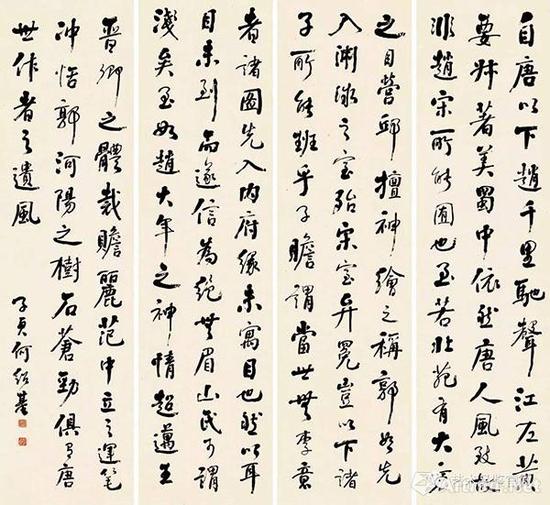 自唐以下趙千里馳聲江左黃
要叔著美蜀中依然唐人風致故
非趙宋所能囿也至若北苑有大
之目營邱擅神繪之稱郭恕先
入淵微之室殆宋室弁冕豈以下諸
子所能班乎子瞻謂當世無李
者諸圖先入內府緣未寓目也然以耳
目未到而遂信為絕無眉山氏可謂
淺矣至如趙大年之神情超邁王
晉卿之體裁贍麗范中立之運筆
沖恬郭河陽之樹石蒼勁俱有唐
世作者之遺風
子貞何紹基